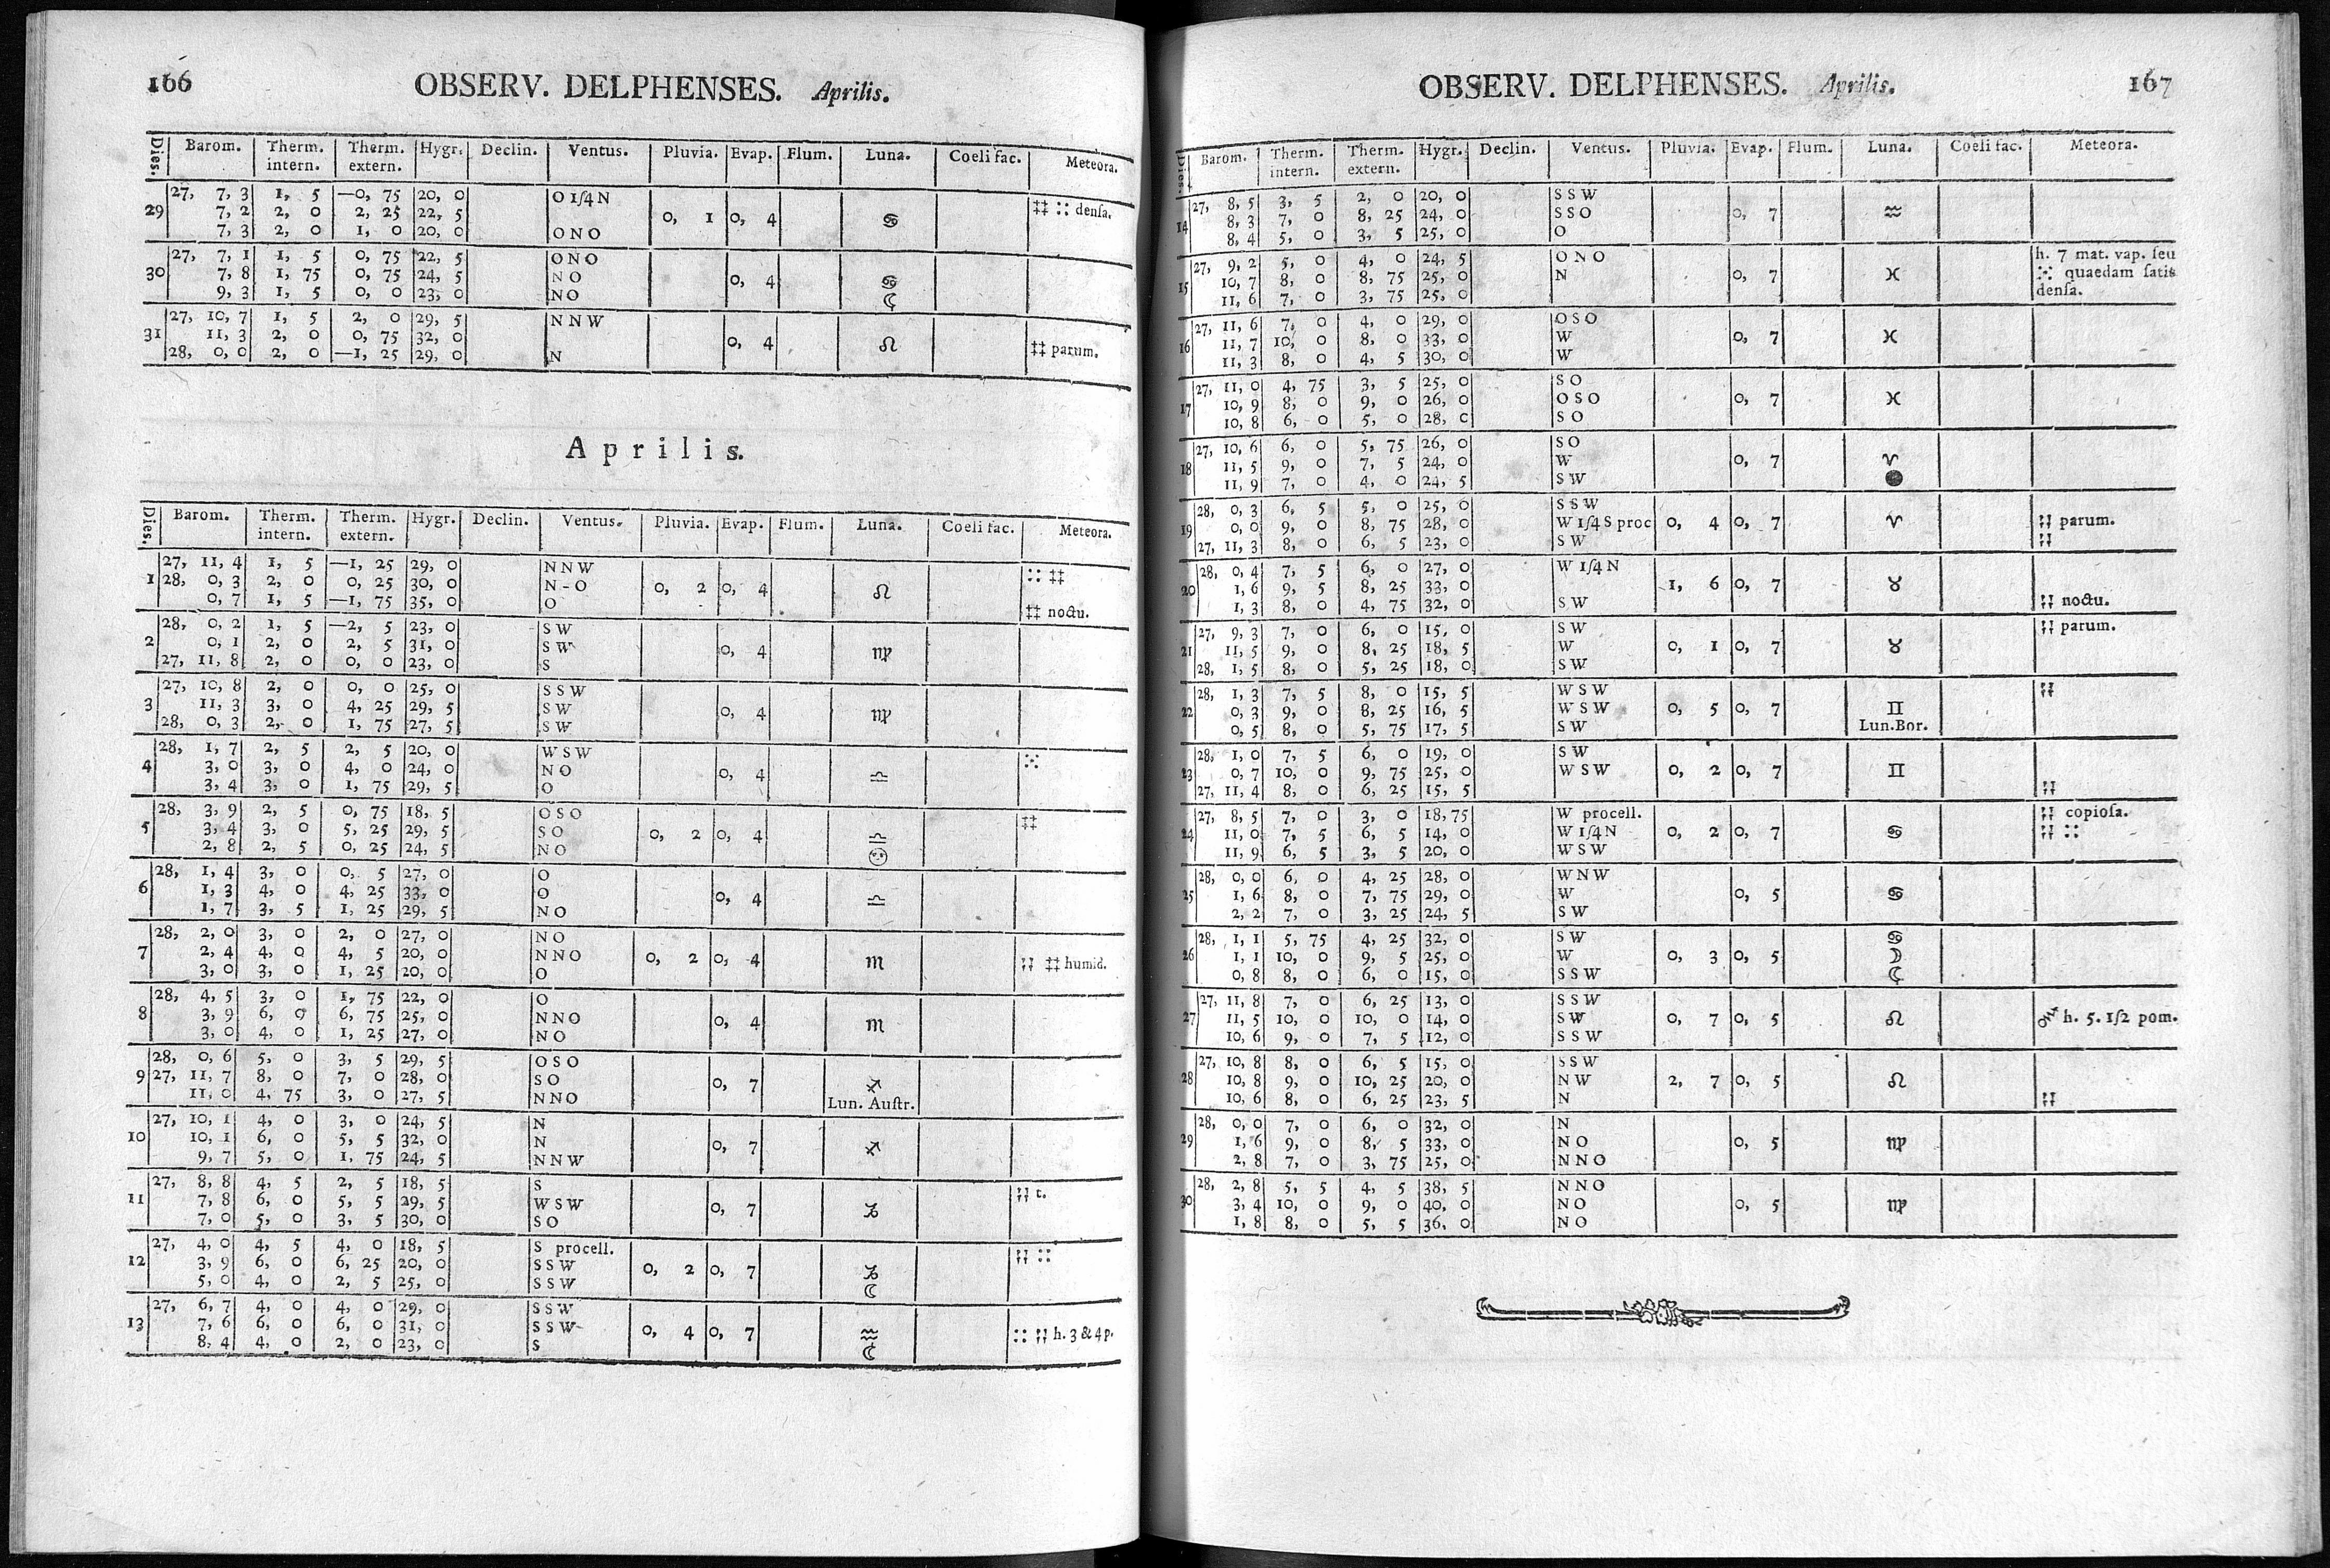 166 OBSERV. DELPHENSES. Aprilis.
Dies. Barom. Therm. intern. Therm. extern. Hygr. Declin. Ventus. Pluvia. Evap. Flum. Luna. Coeli fac. Meteora.
27, 7, 3 1, 5 —0, 75 20, 0 O 1ſ4 N
29 7, 2 2, 0 2, 25 22, 5 0, 1 0, 4 ♋ ‡‡ :: denſa.
7, 3 2, 0 1, 0 20, 0 ONO
27, 7, 1 1, 5 0, 75 22, 5 ONO
30 7, 8 1, 75 0, 75 24, 5 NO 0, 4 ♋
9, 3 1, 5 0, 0 23, 0 NO ☾
27, 10, 7 1, 5 2, 0 29, 5 NNW
31 11, 3 2, 0 0, 75 32, 0 0, 4 ♌
28, 0, 0 2, 0 —1, 25 29, 0 N ‡‡ parum.
Aprilis.
Dies. Barom. Therm. intern. Therm. extern. Hygr. Declin. Ventus. Pluvia. Evap. Flum. Luna. Coeli fac. Meteora.
27, 11, 4 1, 5 —1, 25 29, 0 NNW :: ‡‡
1 28, 0, 3 2, 0 0, 25 30, 0 N-O 0, 2 0, 4 ♌
0, 7 1, 5 —1, 75 35, 0 O ‡‡ noctu.
28, 0, 2 1, 5 —2, 5 23, 0 SW
2 0, 1 2, 0 2, 5 31, 0 SW 0, 4 ♍
27, 11, 8 2, 0 0, 0 23, 0 S
27, 10, 8 2, 0 0, 0 25, 0 SSW
3 11, 3 3, 0 4, 25 29, 5 SW 0, 4 ♍
28, 0, 3 2, 0 1, 75 27, 5 SW
28, 1, 7 2, 5 2, 5 20, 0 WSW ⁙
4 3, 0 3, 0 4, 0 24, 0 NO 0, 4 ♎
3, 4 3, 0 1, 75 29, 5 O
28, 3, 9 2, 5 0, 75 18, 5 OSO ‡‡
5 3, 4 3, 0 5, 25 29, 5 SO 0, 2 0, 4 ♎
2, 8 2, 5 0, 25 24, 5 NO 🌝
28, 1, 4 3, 0 0, 5 27, 0 O
6 1, 3 4, 0 4, 25 33, 0 O 0, 4 ♎
1, 7 3, 5 1, 25 29, 5 NO
28, 2, 0 3, 0 2, 0 27, 0 NO
7 2, 4 4, 0 4, 5 20, 0 NNO 0, 2 0, 4 ♏ ;; ‡‡ humid.
3, 0 3, 0 1, 25 20, 0 O
28, 4, 5 3, 0 1, 75 22, 0 O
8 3, 9 6, 0 6, 75 25, 0 NNO 0, 4 ♏
3, 0 4, 0 1, 25 27, 0 NO
28, 0, 6 5, 0 3, 5 29, 5 OSO
9 27, 11, 7 8, 0 7, 0 28, 0 SO 0, 7 ♐
11, 0 4, 75 3, 0 27, 5 NNO Lun. Auſtr.
27, 10, 1 4, 0 3, 0 24, 5 N
10 10, 1 6, 0 5, 5 32, 0 N 0, 7 ♐
9, 7 5, 0 1, 75 24, 5 NNW
27, 8, 8 4, 5 2, 5 18, 5 S ;; t.
11 7, 8 6, 0 5, 5 29, 5 WSW 0, 7 ♑
7, 0 5, 0 3, 5 30, 0 SO
27, 4, 0 4, 5 4, 0 18, 5 S procell. ;; ::
12 3, 9 6, 0 6, 25 20, 0 SSW 0, 2 0, 7 ♑
5, 0 4, 0 2, 5 25, 0 SSW ☾
27, 6, 7 4, 0 4, 0 29, 0 SSW
13 7, 6 6, 0 6, 0 31, 0 SSW 0, 4 0, 7 ♒ :: ;; h. 3 & 4 p.
8, 4 4, 0 2, 0 23, 0 S ☾
OBSERV. DELPHENSES. Aprilis. 167
Dies. Barom. Therm. intern. Therm. extern. Hygr. Declin. Ventus. Pluvia. Evap. Flum. Luna. Coeli fac. Meteora.
27, 8, 5 3, 5 2, 0 20, 0 SSW
14 8, 3 7, 0 8, 25 24, 0 SSO 0, 7 ♒
8, 4 5, 0 3, 5 25, 0 O
27, 9, 2 5, 0 4, 0 24, 5 ONO h. 7 mat. vap. ſeu
15 10, 7 8, 0 8, 75 25, 0 N 0, 7 ♓ ⁙ quaedam ſatis
11, 6 7, 0 3, 75 25, 0 denſa.
27, 11, 6 7, 0 4, 0 29, 0 OSO
16 11, 7 10, 0 8, 0 33, 0 W 0, 7 ♓
11, 3 8, 0 4, 5 30, 0 W
27, 11, 0 4, 75 3, 5 25, 0 SO
17 10, 9 8, 0 9, 0 26, 0 OSO 0, 7 ♓
10, 8 6, 0 5, 0 28, 0 SO
27, 10, 6 6, 0 5, 75 26, 0 SO
18 11, 5 9, 0 7, 5 24, 0 W 0, 7 ♈
11, 9 7, 0 4, 0 24, 5 SW ●
28, 0, 3 6, 5 5, 0 25, 0 SSW
19 0, 0 9, 0 8, 75 28, 0 W 1ſ4 S proc 0, 4 0, 7 ♈ ;; parum.
27, 11, 3 8, 0 6, 5 23, 0 SW ;;
28, 0, 4 7, 5 6, 0 27, 0 W 1ſ4 N
20 1, 6 9, 5 8, 25 33, 0 1, 6 0, 7 ♉
1, 3 8, 0 4, 75 32, 0 SW ;; noctu.
27, 9, 3 7, 0 6, 0 15, 0 SW ;; parum.
21 11, 5 9, 0 8, 25 18, 5 W 0, 1 0, 7 ♉
28, 1, 5 8, 0 5, 25 18, 0 SW
28, 1, 3 7, 5 8, 0 15, 5 WSW ;;
22 0, 3 9, 0 8, 25 16, 5 WSW 0, 5 0, 7 ♊
0, 5 8, 0 5, 75 17, 5 SW Lun. Bor.
28, 1, 0 7, 5 6, 0 19, 0 SW
23 0, 7 10, 0 9, 75 25, 0 WSW 0, 2 0, 7 ♊
27, 11, 4 8, 0 6, 25 15, 5 ;;
27, 8, 5 7, 0 3, 0 18, 75 W procell. ;; copioſa.
24 11, 0 7, 5 6, 5 14, 0 W 1ſ4 N 0, 2 0, 7 ♋ ;; ::
11, 9 6, 5 3, 5 20, 0 WSW
28, 0, 0 6, 0 4, 25 28, 0 WNW
25 1, 6 8, 0 7, 75 29, 0 W 0, 5 ♋
2, 2 7, 0 3, 25 24, 5 SW
28, 1, 1 5, 75 4, 25 32, 0 SW ♋
26 1, 1 10, 0 9, 5 25, 0 W 0, 3 0, 5 ☽
0, 8 8, 0 6, 0 15, 0 SSW ☾
27, 11, 8 7, 0 6, 25 13, 0 SSW
27 11, 5 10, 0 10, 0 14, 0 SW 0, 7 0, 5 ♌ h. 5. 1ſ2 pom.
10, 6 9, 0 7, 5 12, 0 SSW
27, 10, 8 8, 0 6, 5 15, 0 SSW
28 10, 8 9, 0 10, 25 20, 0 NW 2, 7 0, 5 ♌
10, 6 8, 0 6, 25 23, 5 N ;;
28, 0, 0 7, 0 6, 0 32, 0 N
29 1, 6 9, 0 8, 5 33, 0 NO 0, 5 ♍
2, 8 7, 0 3, 75 25, 0 NNO
28, 2, 8 5, 5 4, 5 38, 5 NNO
30 3, 4 10, 0 9, 0 40, 0 NO 0, 5 ♍
1, 8 8, 0 5, 5 36, 0 NO